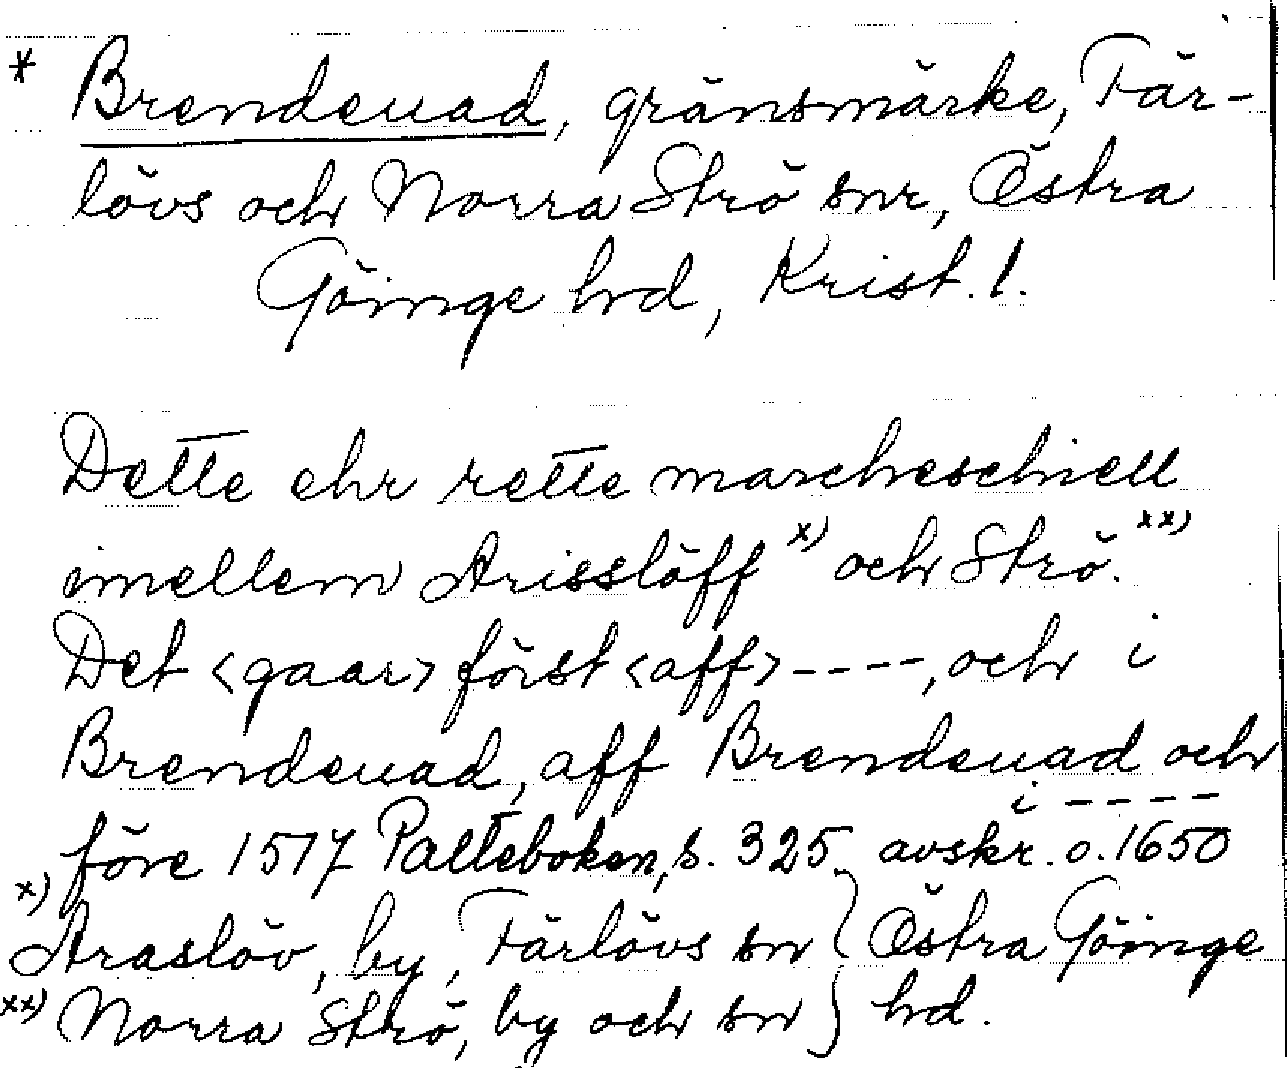 * Brendeuad, gränsmärke, Fär-
lövs och Norra Strö snr, Östra
Göinge hd, Krist. l.
Dette ehr rette marcheschiell
imellem Arisslöff x) och Strö. xx)
Det <gaar> först <aff> ----, och i
Brendeuad, aff Brendeuad och
i ----
före 1517 Palteboken, s. 325 avskr. o. 1650
x) Araslöv, by, Färlövs sn } Östra Göinge
xx) Norra Strö, by och sn } hd.